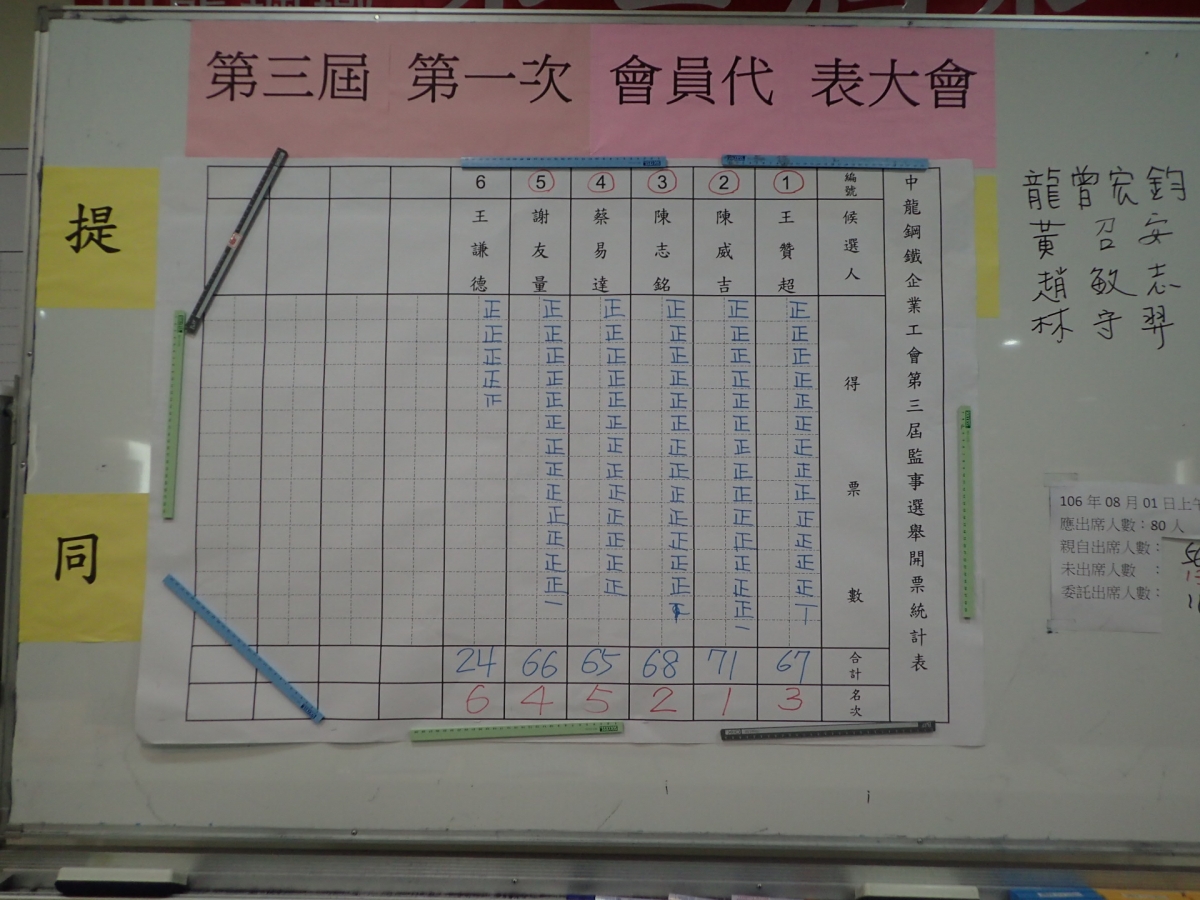 第三屆 第一次 會員代 表大會
提
同
中龍鋼鐵企業工會第三屆監事選舉開票統計表
編號 ① ② ③ ④ ⑤ 6
候選人 王贊超 陳威吉 陳志銘 蔡易達 謝友量 王謙德
得票數
正正正正正正正正正正正正正
正正正正正正正正正正正正正正一
正正正正正正正正正正正正正
正正正正正正正正正正正正正
正正正正正正正正正正正正正一
正正正正正
合計 67 71 68 65 66 24
名次 3 1 2 5 4 6
龍曾宏鈞
黃召安
趙敏志
林守羿
106 年 08 月 01 日上午
應出席人數：80 人
親自出席人數：
未出席人數 ：
委託出席人數：